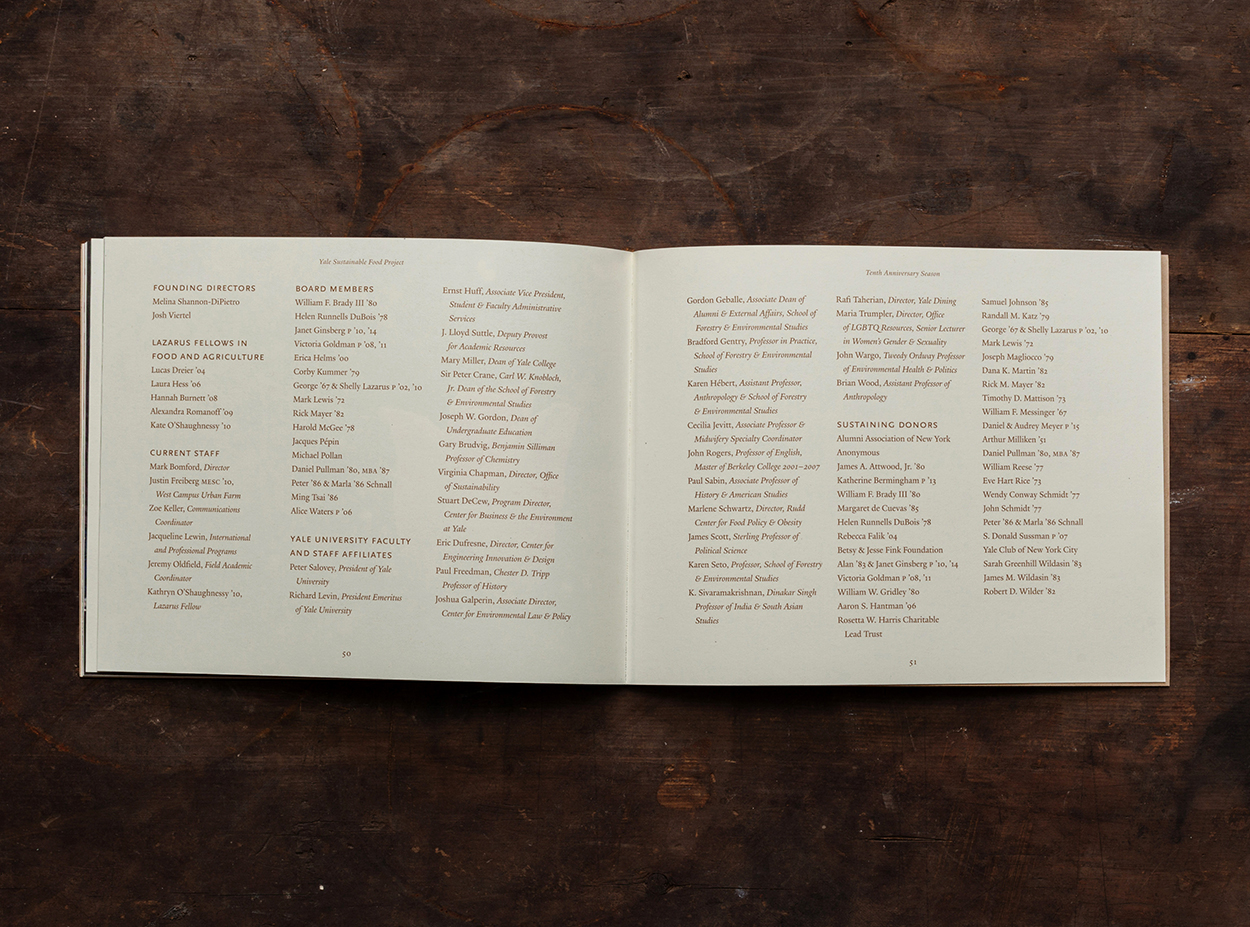 Yale Sustainable Food Project
FOUNDING DIRECTORS
Melina Shannon-DiPietro
Josh Viertel
LAZARUS FELLOWS IN
FOOD AND AGRICULTURE
Lucas Dreier ’04
Laura Hess ’06
Hannah Burnett ’08
Alexandra Romanoff ’09
Kate O’Shaughnessy ’10
CURRENT STAFF
Mark Bomford, Director
Justin Freiberg MESC ’10,
West Campus Urban Farm
Zoe Keller, Communications
Coordinator
Jacqueline Lewin, International
and Professional Programs
Jeremy Oldfield, Field Academic
Coordinator
Kathryn O’Shaughnessy ’10,
Lazarus Fellow
BOARD MEMBERS
William F. Brady III ’80
Helen Runnells DuBois ’78
Janet Ginsberg P ’10, ’14
Victoria Goldman P ’08, ’11
Erica Helms ’00
Corby Kummer ’79
George ’67 & Shelly Lazarus P ’02, ’10
Mark Lewis ’72
Rick Mayer ’82
Harold McGee ’78
Jacques Pépin
Michael Pollan
Daniel Pullman ’80, MBA ’87
Peter ’86 & Marla ’86 Schnall
Ming Tsai ’86
Alice Waters P ’06
YALE UNIVERSITY FACULTY
AND STAFF AFFILIATES
Peter Salovey, President of Yale
University
Richard Levin, President Emeritus
of Yale University
Ernst Huff, Associate Vice President,
Student & Faculty Administrative
Services
J. Lloyd Suttle, Deputy Provost
for Academic Resources
Mary Miller, Dean of Yale College
Sir Peter Crane, Carl W. Knobloch,
Jr. Dean of the School of Forestry
& Environmental Studies
Joseph W. Gordon, Dean of
Undergraduate Education
Gary Brudvig, Benjamin Silliman
Professor of Chemistry
Virginia Chapman, Director, Office
of Sustainability
Stuart DeCew, Program Director,
Center for Business & the Environment
at Yale
Eric Dufresne, Director, Center for
Engineering Innovation & Design
Paul Freedman, Chester D. Tripp
Professor of History
Joshua Galperin, Associate Director,
Center for Environmental Law & Policy
50
Tenth Anniversary Season
Gordon Geballe, Associate Dean of
Alumni & External Affairs, School of
Forestry & Environmental Studies
Bradford Gentry, Professor in Practice,
School of Forestry & Environmental
Studies
Karen Hébert, Assistant Professor,
Anthropology & School of Forestry
& Environmental Studies
Cecilia Jevitt, Associate Professor &
Midwifery Specialty Coordinator
John Rogers, Professor of English,
Master of Berkeley College 2001–2007
Paul Sabin, Associate Professor of
History & American Studies
Marlene Schwartz, Director, Rudd
Center for Food Policy & Obesity
James Scott, Sterling Professor of
Political Science
Karen Seto, Professor, School of Forestry
& Environmental Studies
K. Sivaramakrishnan, Dinakar Singh
Professor of India & South Asian
Studies
Rafi Taherian, Director, Yale Dining
Maria Trumpler, Director, Office
of LGBTQ Resources, Senior Lecturer
in Women’s Gender & Sexuality
John Wargo, Tweedy Ordway Professor
of Environmental Health & Politics
Brian Wood, Assistant Professor of
Anthropology
SUSTAINING DONORS
Alumni Association of New York
Anonymous
James A. Attwood, Jr. ’80
Katherine Bermingham P ’13
William F. Brady III ’80
Margaret de Cuevas ’85
Helen Runnells DuBois ’78
Rebecca Falik ’04
Betsy & Jesse Fink Foundation
Alan ’83 & Janet Ginsberg P ’10, ’14
Victoria Goldman P ’08, ’11
William W. Gridley ’80
Aaron S. Hantman ’96
Rosetta W. Harris Charitable
Lead Trust
Samuel Johnson ’85
Randall M. Katz ’79
George ’67 & Shelly Lazarus P ’02, ’10
Mark Lewis ’72
Joseph Magliocco ’79
Dana K. Martin ’82
Rick M. Mayer ’82
Timothy D. Mattison ’73
William F. Messinger ’67
Daniel & Audrey Meyer P ’15
Arthur Milliken ’51
Daniel Pullman ’80, MBA ’87
William Reese ’77
Eve Hart Rice ’73
Wendy Conway Schmidt ’77
John Schmidt ’77
Peter ’86 & Marla ’86 Schnall
S. Donald Sussman P ’07
Yale Club of New York City
Sarah Greenhill Wildasin ’83
James M. Wildasin ’83
Robert D. Wilder ’82
51